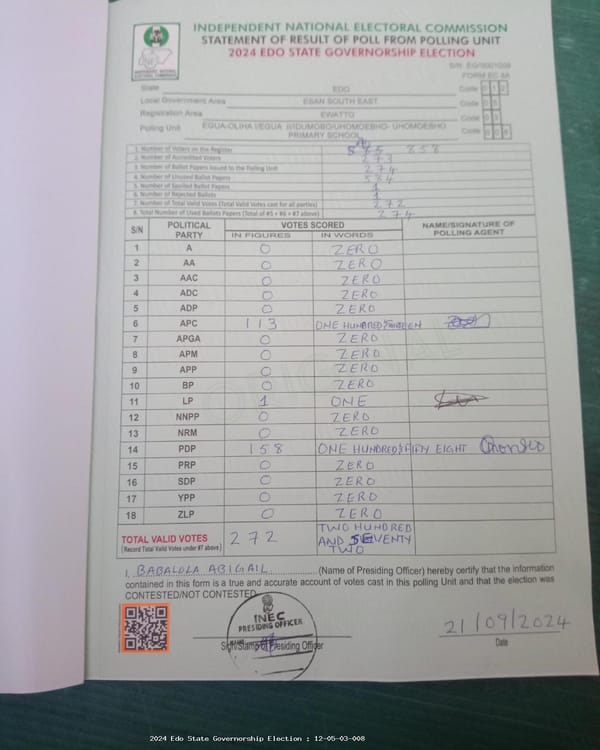 INDEPENDENT NATIONAL ELECTORAL COMMISSION
STATEMENT OF RESULT OF POLL FROM POLLING UNIT
2024 EDO STATE GOVERNORSHIP ELECTION
FORM EC 8A
State EDO Code
Local Government Area ESAN SOUTH EAST Code
Registration Area EWATTO Code
Polling Unit EGUA-OLIHA I/EGUA II/IDUMOBO/UHOMOEBHO- UHOMOEBHO PRIMARY SCHOOL Code
1. Number of Voters on the Register 858
2. Number of Accredited Voters 273
3. Number of Ballot Papers Issued to the Polling Unit
4. Number of Unused Ballot Papers 584
5. Number of Spoiled Ballot Papers 1
6. Number of Rejected Ballots 1
7. Number of Total Valid Votes (Total Valid Votes cast for all parties) 272
8. Total Number of Used Ballots Papers (Total of #5 + #6 + #7 above) 274
S/N POLITICAL PARTY VOTES SCORED NAME/SIGNATURE OF POLLING AGENT
IN FIGURES IN WORDS
1 A 0 ZERO
2 AA 0 ZERO
3 AAC 0 ZERO
4 ADC 0 ZERO
5 ADP 0 ZERO
6 APC 113 ONE HUNDRED
7 APGA 0 ZERO
8 APM 0 ZERO
9 APP 0 ZERO
10 BP 0 ZERO
11 LP 1 ONE
12 NNPP 0 ZERO
13 NRM 0 ZERO
14 PDP 158 ONE HUNDRED & FIFTY EIGHT
15 PRP 0 ZERO
16 SDP 0 ZERO
17 YPP 0 ZERO
18 ZLP 0 ZERO
TOTAL VALID VOTES 272 TWO HUNDRED AND SEVENTY TWO
(Record Total Valid Votes under #7 above)
I, BABALOLA ABIGAIL (Name of Presiding Officer) hereby certify that the information
contained in this form is a true and accurate account of votes cast in this polling Unit and that the election was
CONTESTED/NOT CONTESTED
INEC
PRESIDING OFFICER
Sign/Stamp of Presiding Officer
21/09/2024
Date
2024 Edo State Governorship Election : 12-05-03-008